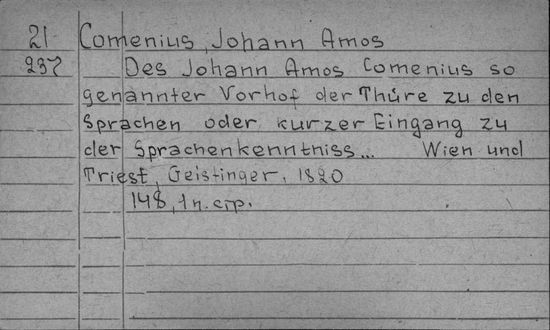 21 Comenius, Johann Amos
237 Des Johann Amos Comenius so
genannter Vorhof der Thüre zu den
Sprachen oder kurzer Eingang zu
der Sprachenkenntniss... Wien und
Triest, Geistinger, 1820
148, 1 n. стр.